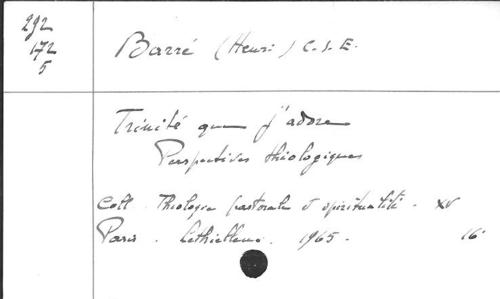 292
172
5
Barré (Henri) C. S. E.
Trinité que j'adore
Perspectives théologiques
Coll. Théologie pastorale & spiritualité - XV
Paris. Lethielleux. 1965. 16°